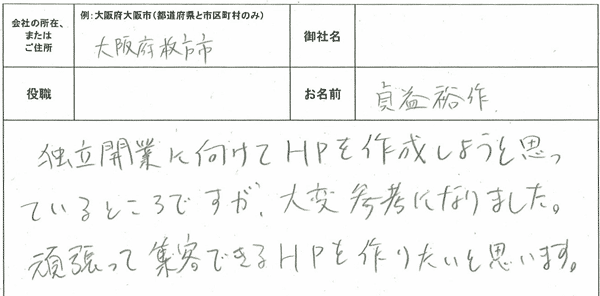 会社の所在、または ご住所
例：大阪府大阪市（都道府県と市区町村のみ）
大阪府枚方市
御社名
役職
お名前
貞益裕作
独立開業に向けてHPを作成しようと思っ
ているところですが、大変参考になりました。
頑張って集客できるHPを作りたいと思います。